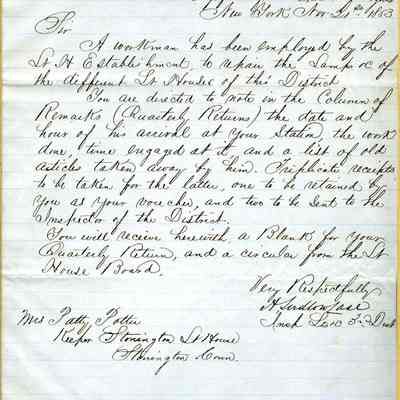 New York Nov 1853
Sir
A workman has been employed by the
Lt. H Establishment, to repair the Lamps &c of
the different Lt Houses of this District
You are directed to note in the Column of
Remarks (Quarterly Returns) the date and
hour of his arrival at your Station, the work
done, time engaged at it and a list of old
articles taken away by him. Triplicate receipts
to be taken for the latter, one to be retained by
you as your voucher, and two to be sent to the
Inspector of the District.
You will receive herewith, a Blank for your
Quarterly Return, and a circular from the Lt
House Board.
Very Respectfully
Insp 3d Dist
Mrs Patty Potter
Keeper Stonington Lt House
Stonington Conn.